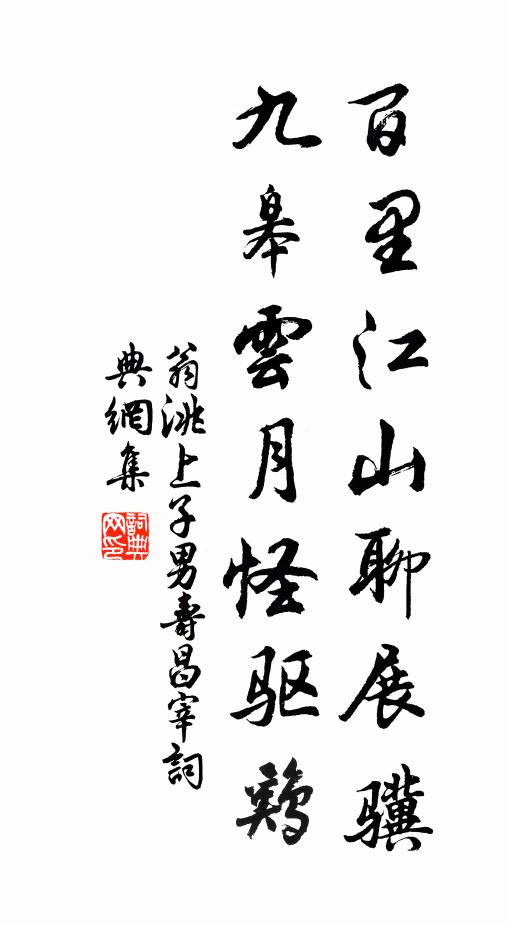 百里江山聊展骥
九皋雲月怪驱鷄
翁洮上子男壽昌宰詞
典網集
詞典網印